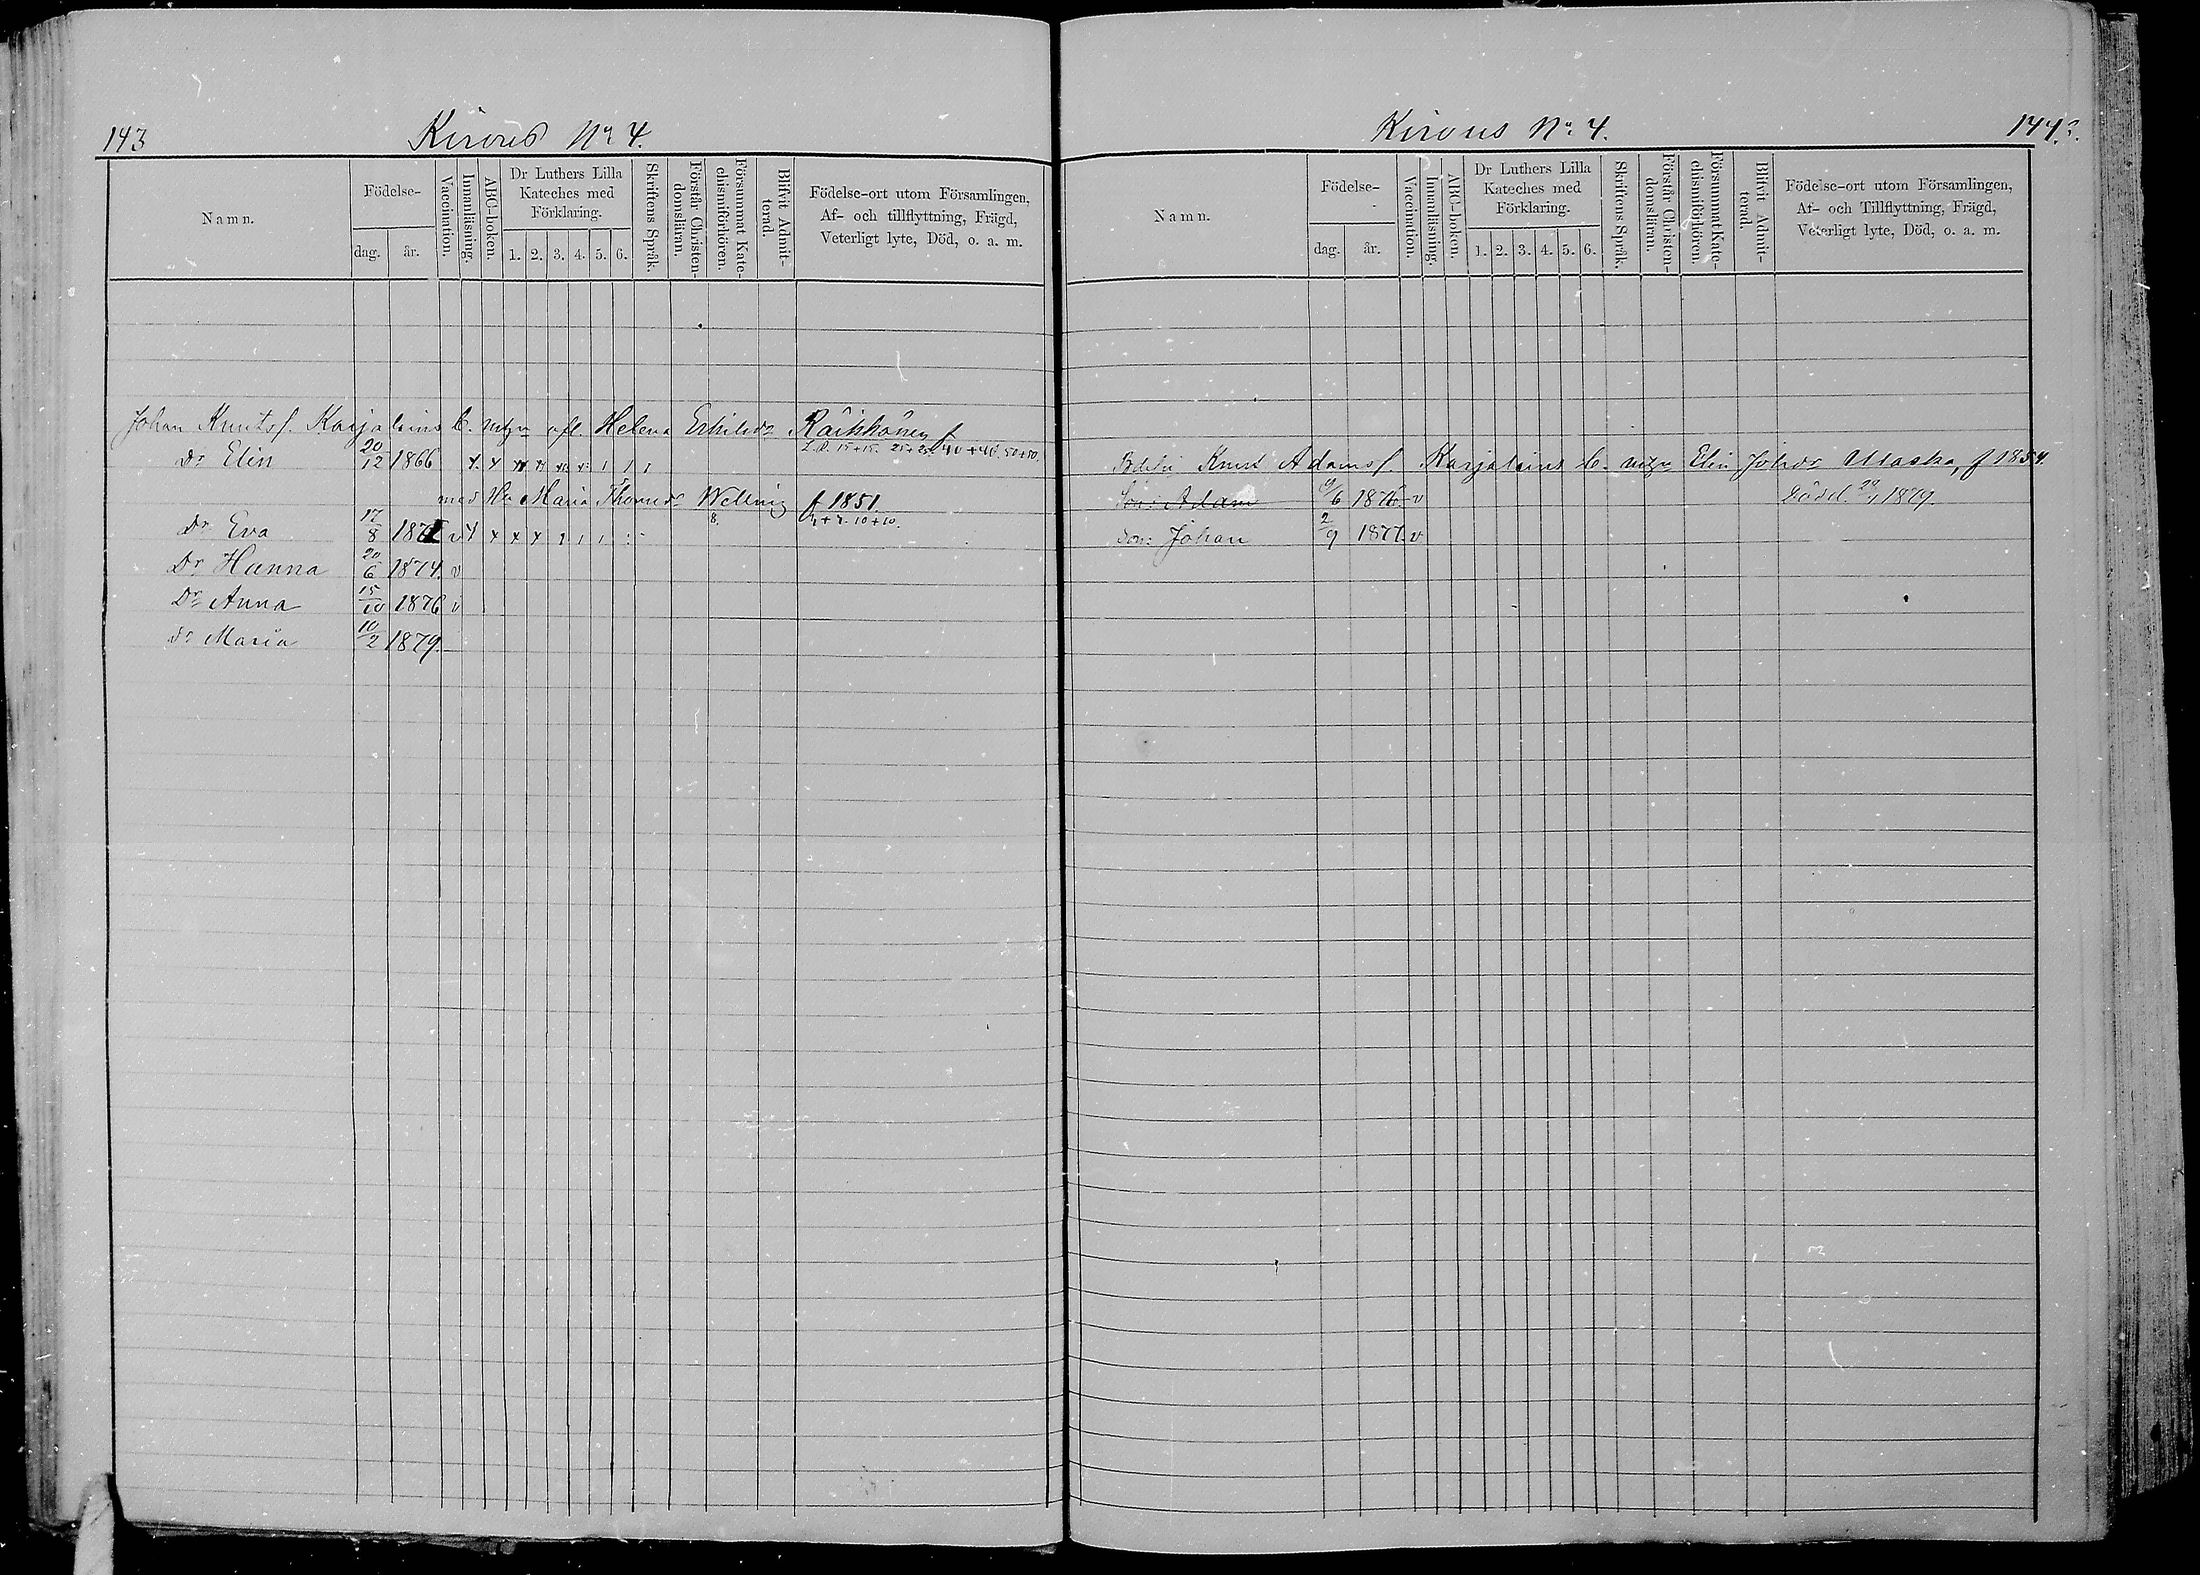 143
Kirvus No 4.
Namn.
Födelse-
dag.
år.
Vaccination.
Innanläsning.
ABC-boken.
Dr Luthers Lilla
Kateches med
Förklaring.
1. 2. 3. 4. 5. 6.
Skriftens Språk.
Förstår Christen-
domsläran.
Försummat Kate-
chismiförhören.
Blifvit Admit-
terad.
Födelse-ort utom Församlingen,
Af- och tillflyttning, Frägd,
Veterligt lyte, Död, o. a. m.
Johan Knutss. Karjalains b. m. Helena Räikkönen
Dr Elin 20/12 1866
med Hu Maria Thomedr f 1851.
Dr Eva 17/8
Dr Hanna 20/6 1874. v
Dr Anna 15/10 1876 v
Dr Maria 10/2 1879.
Kirvus No 4.
144
Namn.
Födelse-
dag.
år.
Vaccination.
Innanläsning.
ABC-boken
Dr Luthers Lilla
Kateches med
Förklaring.
1. 2. 3. 4. 5. 6.
Skriftens Språk.
Förstår Christen-
domsläran.
Försummat Kate-
chismiförhören.
Blifvit Admit-
terad.
Födelse-ort utom Församlingen,
Af- och Tillflyttning, Frägd,
Veterligt lyte, Död, o. a. m.
Knut Adamss. Karjalains b. Elin Johdr Ulaska, f 1854.
Son: Adam 9/6 v Död 1879.
Son: Johan 2/9 1877. v